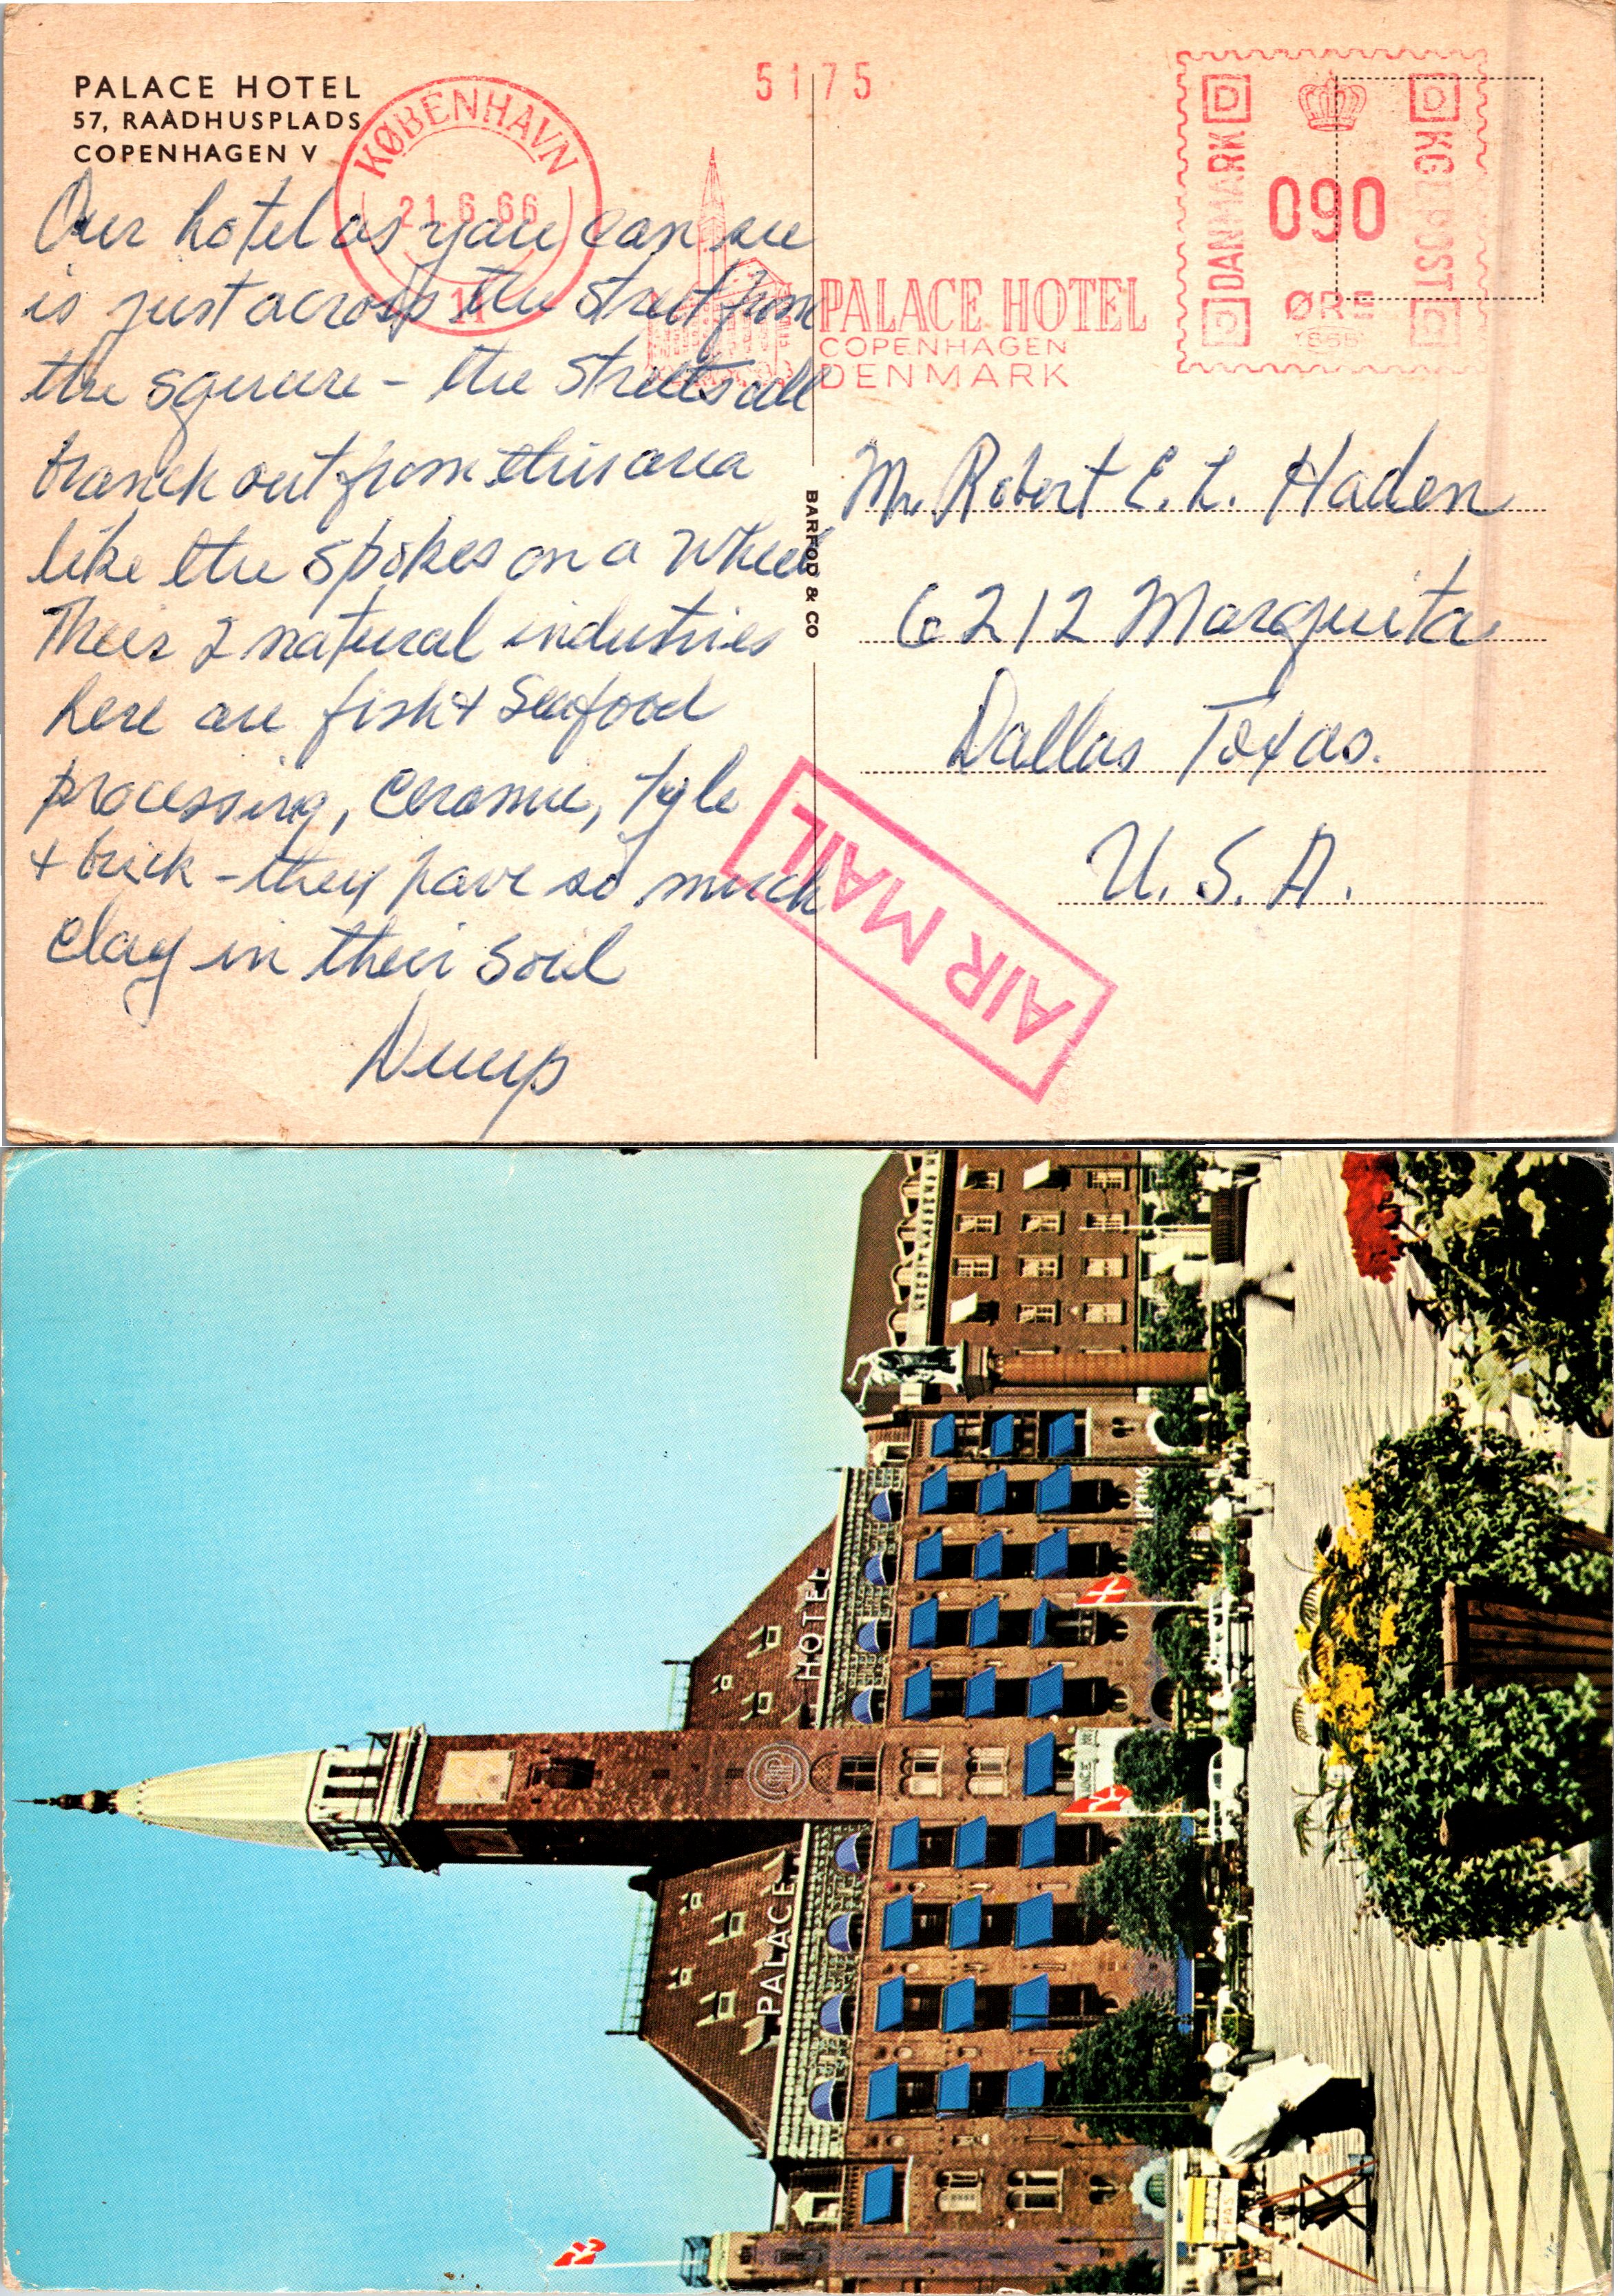 PALACE HOTEL
57, RAADHUSPLADS
COPENHAGEN V
KØBENHAVN
21.6.66
11
5175
PALACE HOTEL
COPENHAGEN
DENMARK
DANMARK
KGL POST
090
ØRE
Our hotel as you can see
is just across the street from
the square - the streets all
branch out from this area
like the spokes on a wheel
Their 2 natural industries
here are fish & Seafood
processing, ceramic, tyle
+ brick - they have so much
clay in their soil
BARFOD & CO
Mr. Robert E. L. Haden
6212 Marquita
Dallas Texas.
U. S. A.
AIR MAIL
PALACE
HOTEL